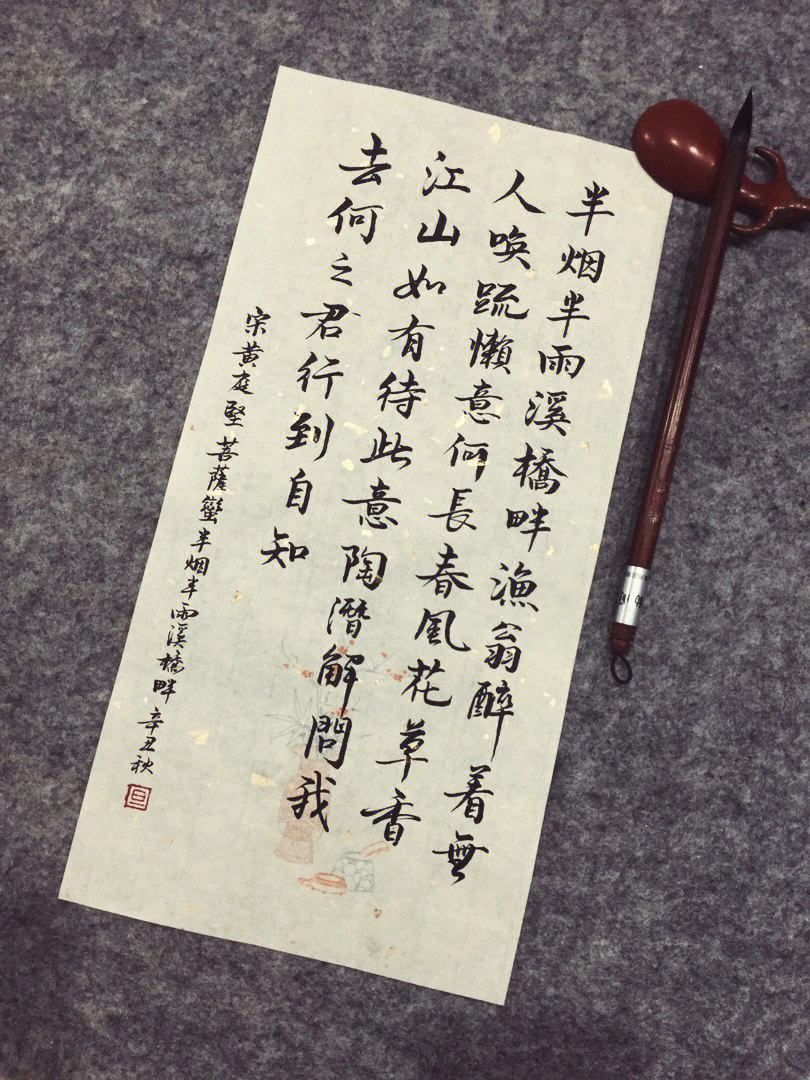 半烟半雨溪橋畔漁翁醉着無
人唤疏懶意何長春風花草香
江山如有待此意陶潛解問我
去何之君行到自知
宋黄庭堅菩薩蠻半烟半雨溪橋畔辛丑秋